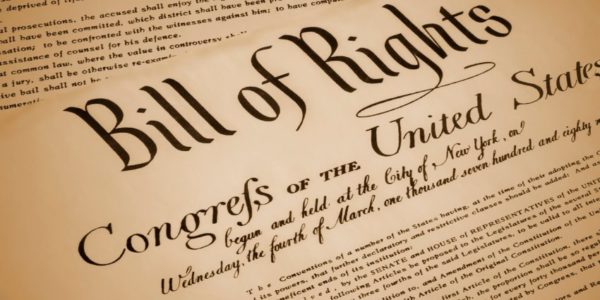 deprived of life
prosecutions, the accused shall enjoy the
have been committed, which district shall have been
to be confronted with the witnesses against him; to have
assistance of counsel for his defence.
common law, where the value in controversy shall
a jury, shall be otherwise
bail shall not be
Bill of Rights
Congreſs OF THE United States
begun and held at the City of New York, on
Wednesday, the fourth of March, one thousand seven hundred and eighty
The Conventions of a number of the States having, at the time of their adopting the
its powers, that further declaratory and restrictive clauses should be added: And as
ends of its
by the SENATE and HOUSE of REPRESENTATIVES of the
following Articles be proposed to the Legislatures of the several
three fourths of the said Legislatures, to be valid to all
to, and Amendment of the Constitution of the
of the Original Constitution.